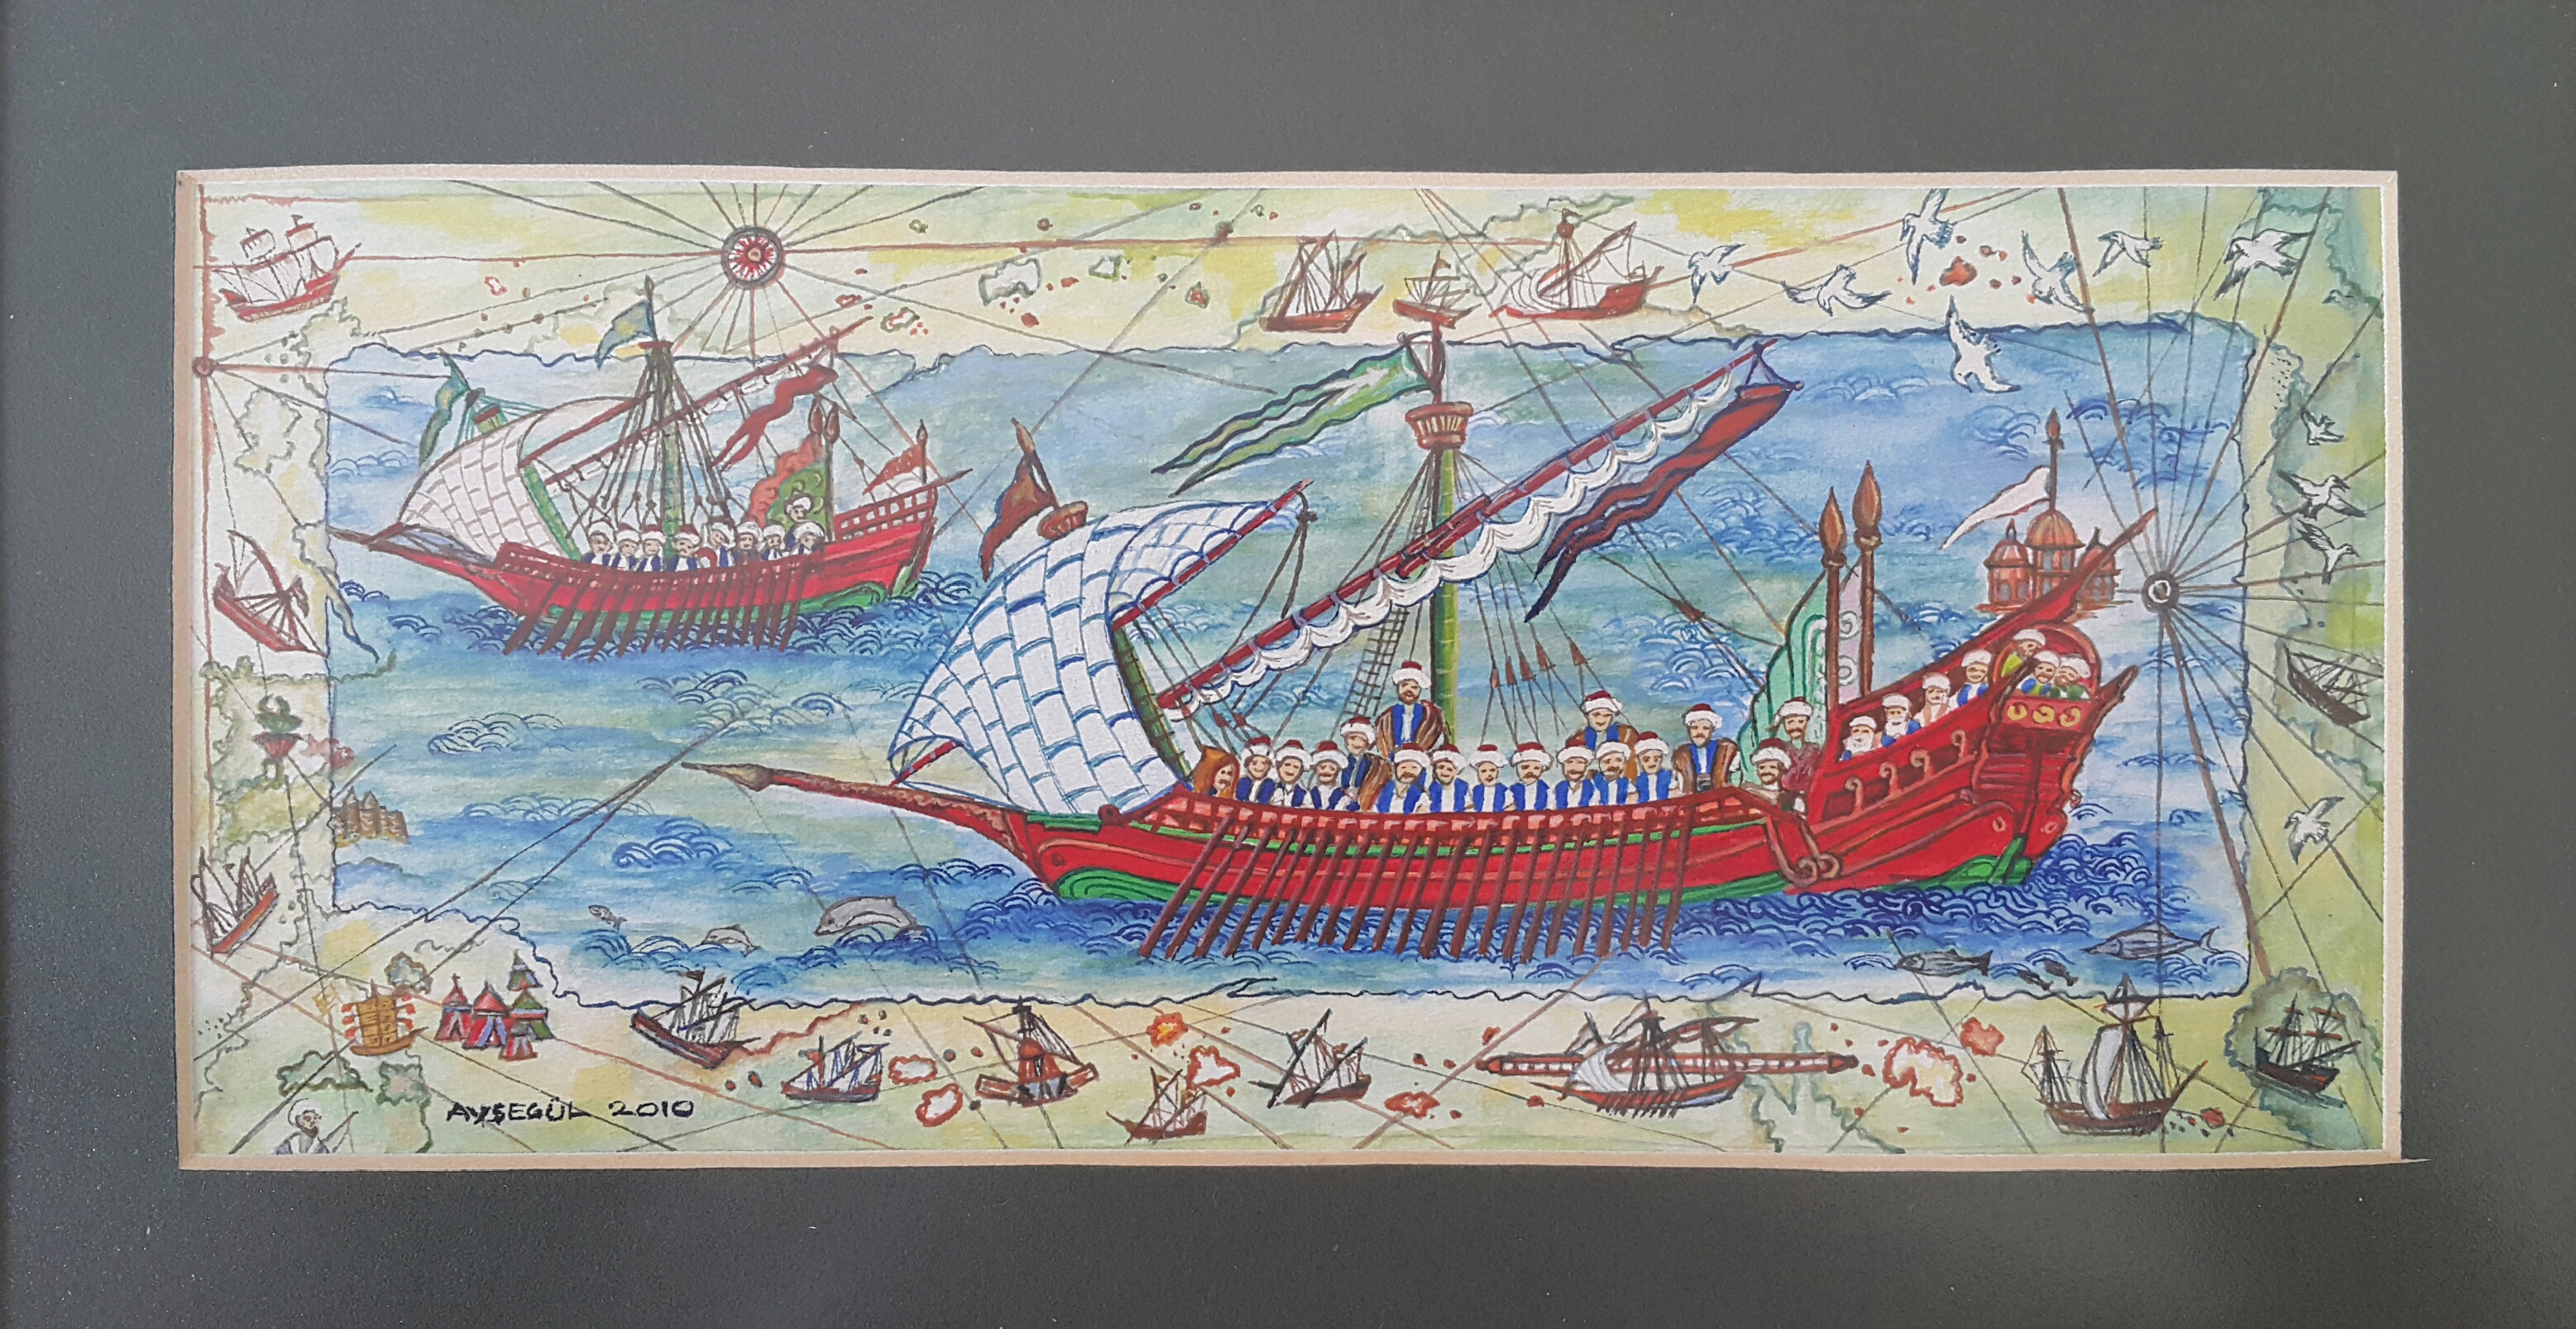 AYŞEGÜL 2010